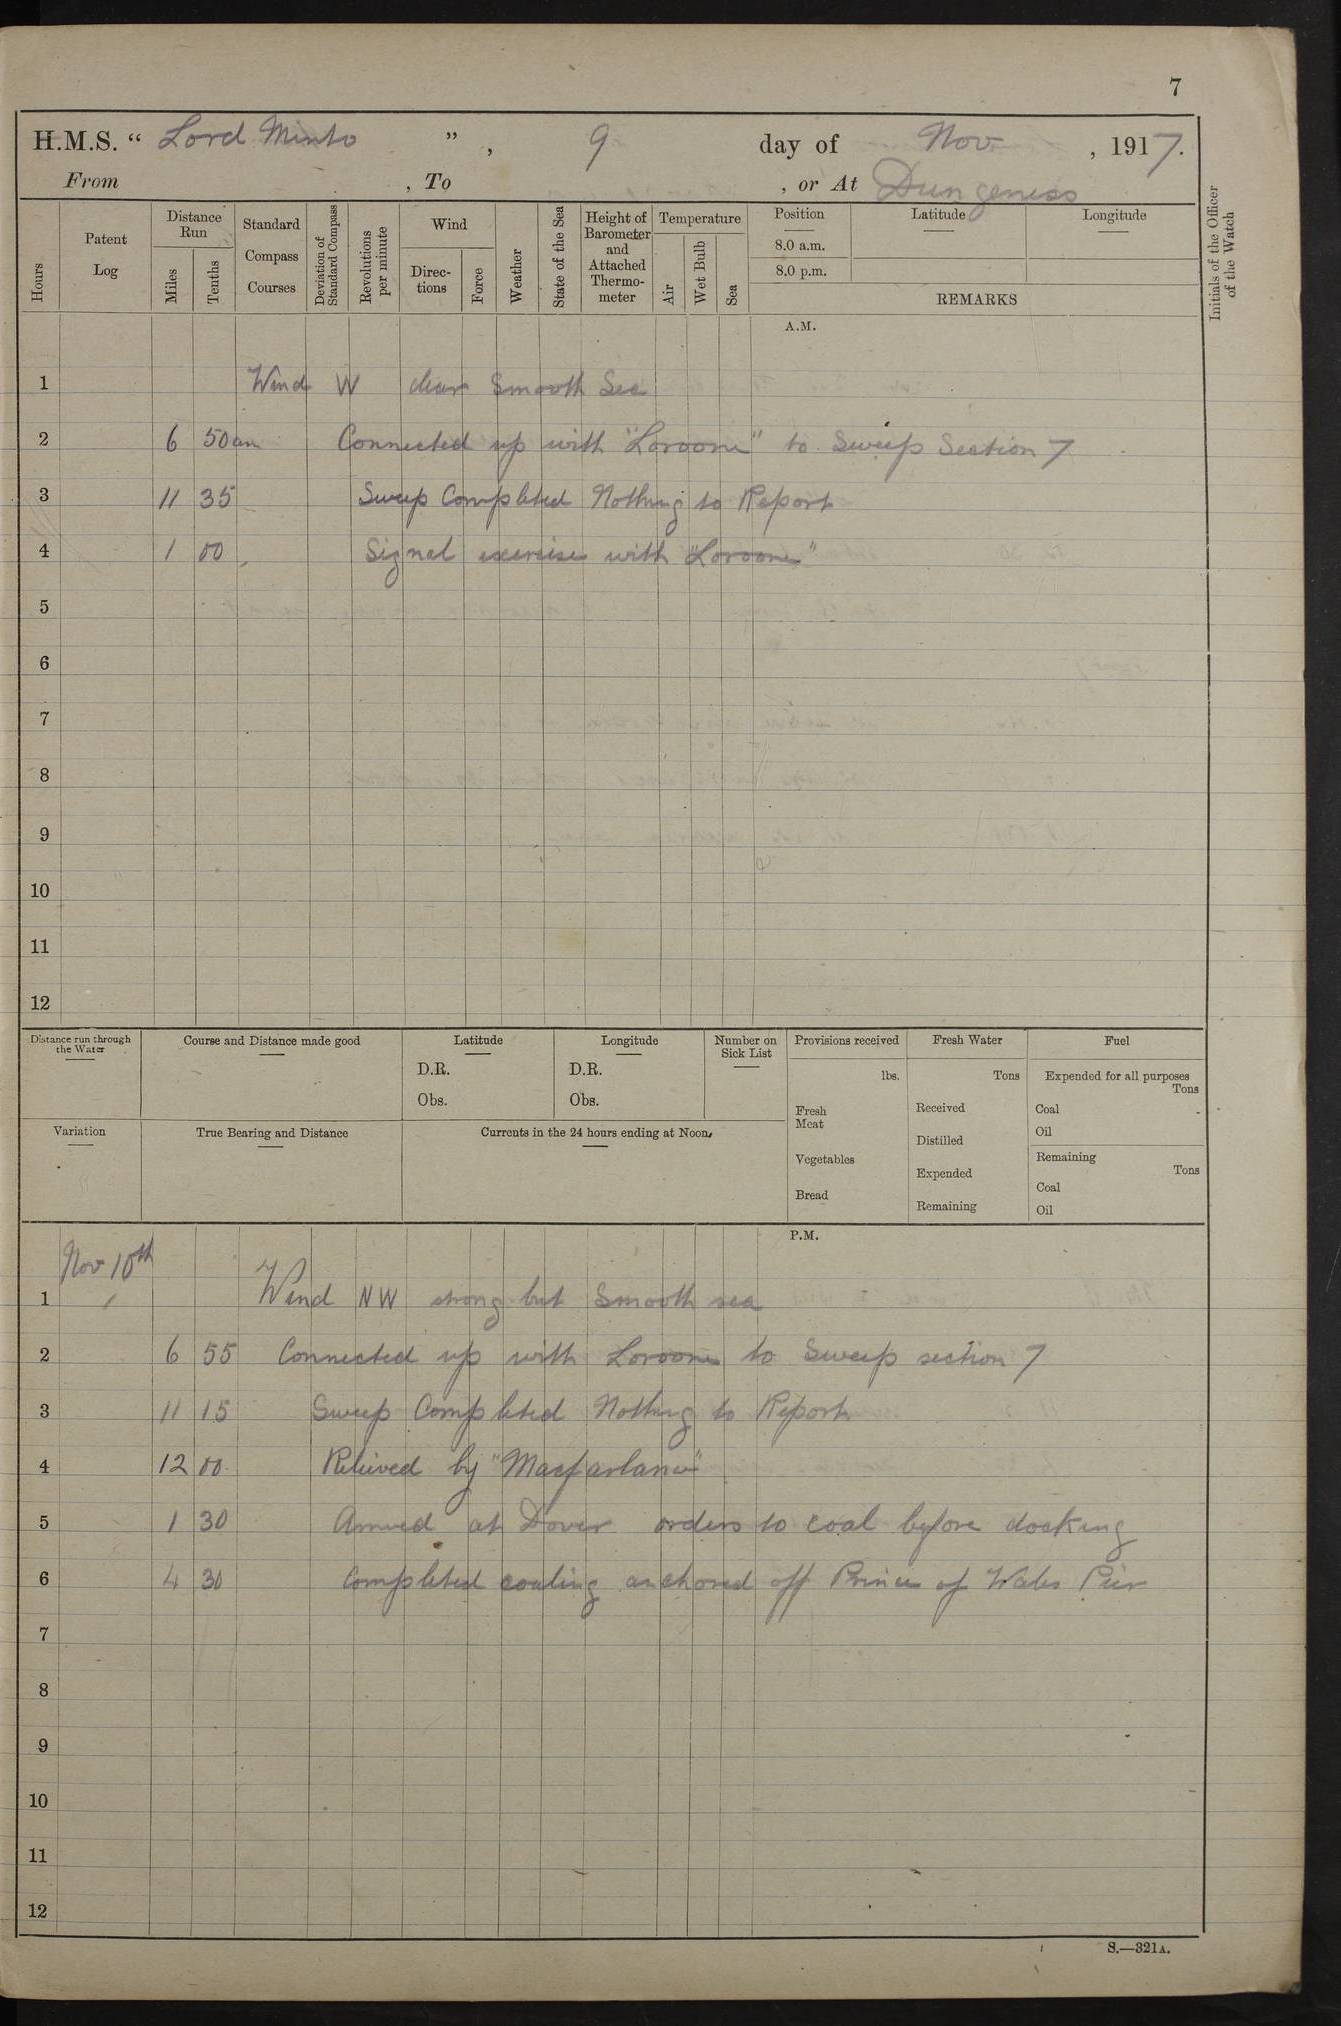 7
H.M.S. “ Lord Minto ” , 9 day of Nov , 1917.
From , To , or At Dungeness
Hours
Patent Log
Distance Run
Miles
Tenths
Standard Compass Courses
Deviation of Standard Compass
Revolutions per minute
Wind
Directions
Force
Weather
State of the Sea
Height of Barometer and Attached Thermo-meter
Temperature
Air
Wet Bulb
Sea
Position
8.0 a.m.
8.0 p.m.
Latitude
Longitude
REMARKS
Initials of the Officer of the Watch
A.M.
1 Wind W clear Smooth Sea
2 6 50am Connected up with "Loroone" to Sweep Section 7
3 11 35 Sweep Completed Nothing to Report
4 1 00 Signal exercise with "Loroone"
5
6
7
8
9
10
11
12
Distance run through the Water
Course and Distance made good
Latitude
D.R.
Obs.
Longitude
D.R.
Obs.
Number on Sick List
Provisions received
lbs.
Fresh Meat
Vegetables
Bread
Fresh Water
Tons
Received
Distilled
Expended
Remaining
Fuel
Expended for all purposes
Tons
Coal
Oil
Remaining
Tons
Coal
Oil
Variation
True Bearing and Distance
Currents in the 24 hours ending at Noon
P.M.
Nov 10th
1 Wind NW strong but Smooth sea
2 6 55 Connected up with Loroone to Sweep section 7
3 11 15 Sweep Completed Nothing to Report
4 12 00 Relieved by "Macfarlane"
5 1 30 Arrived at Dover orders to coal before docking
6 4 30 Completed coaling anchored off Prince of Wales Pier
7
8
9
10
11
12
S.—321A.